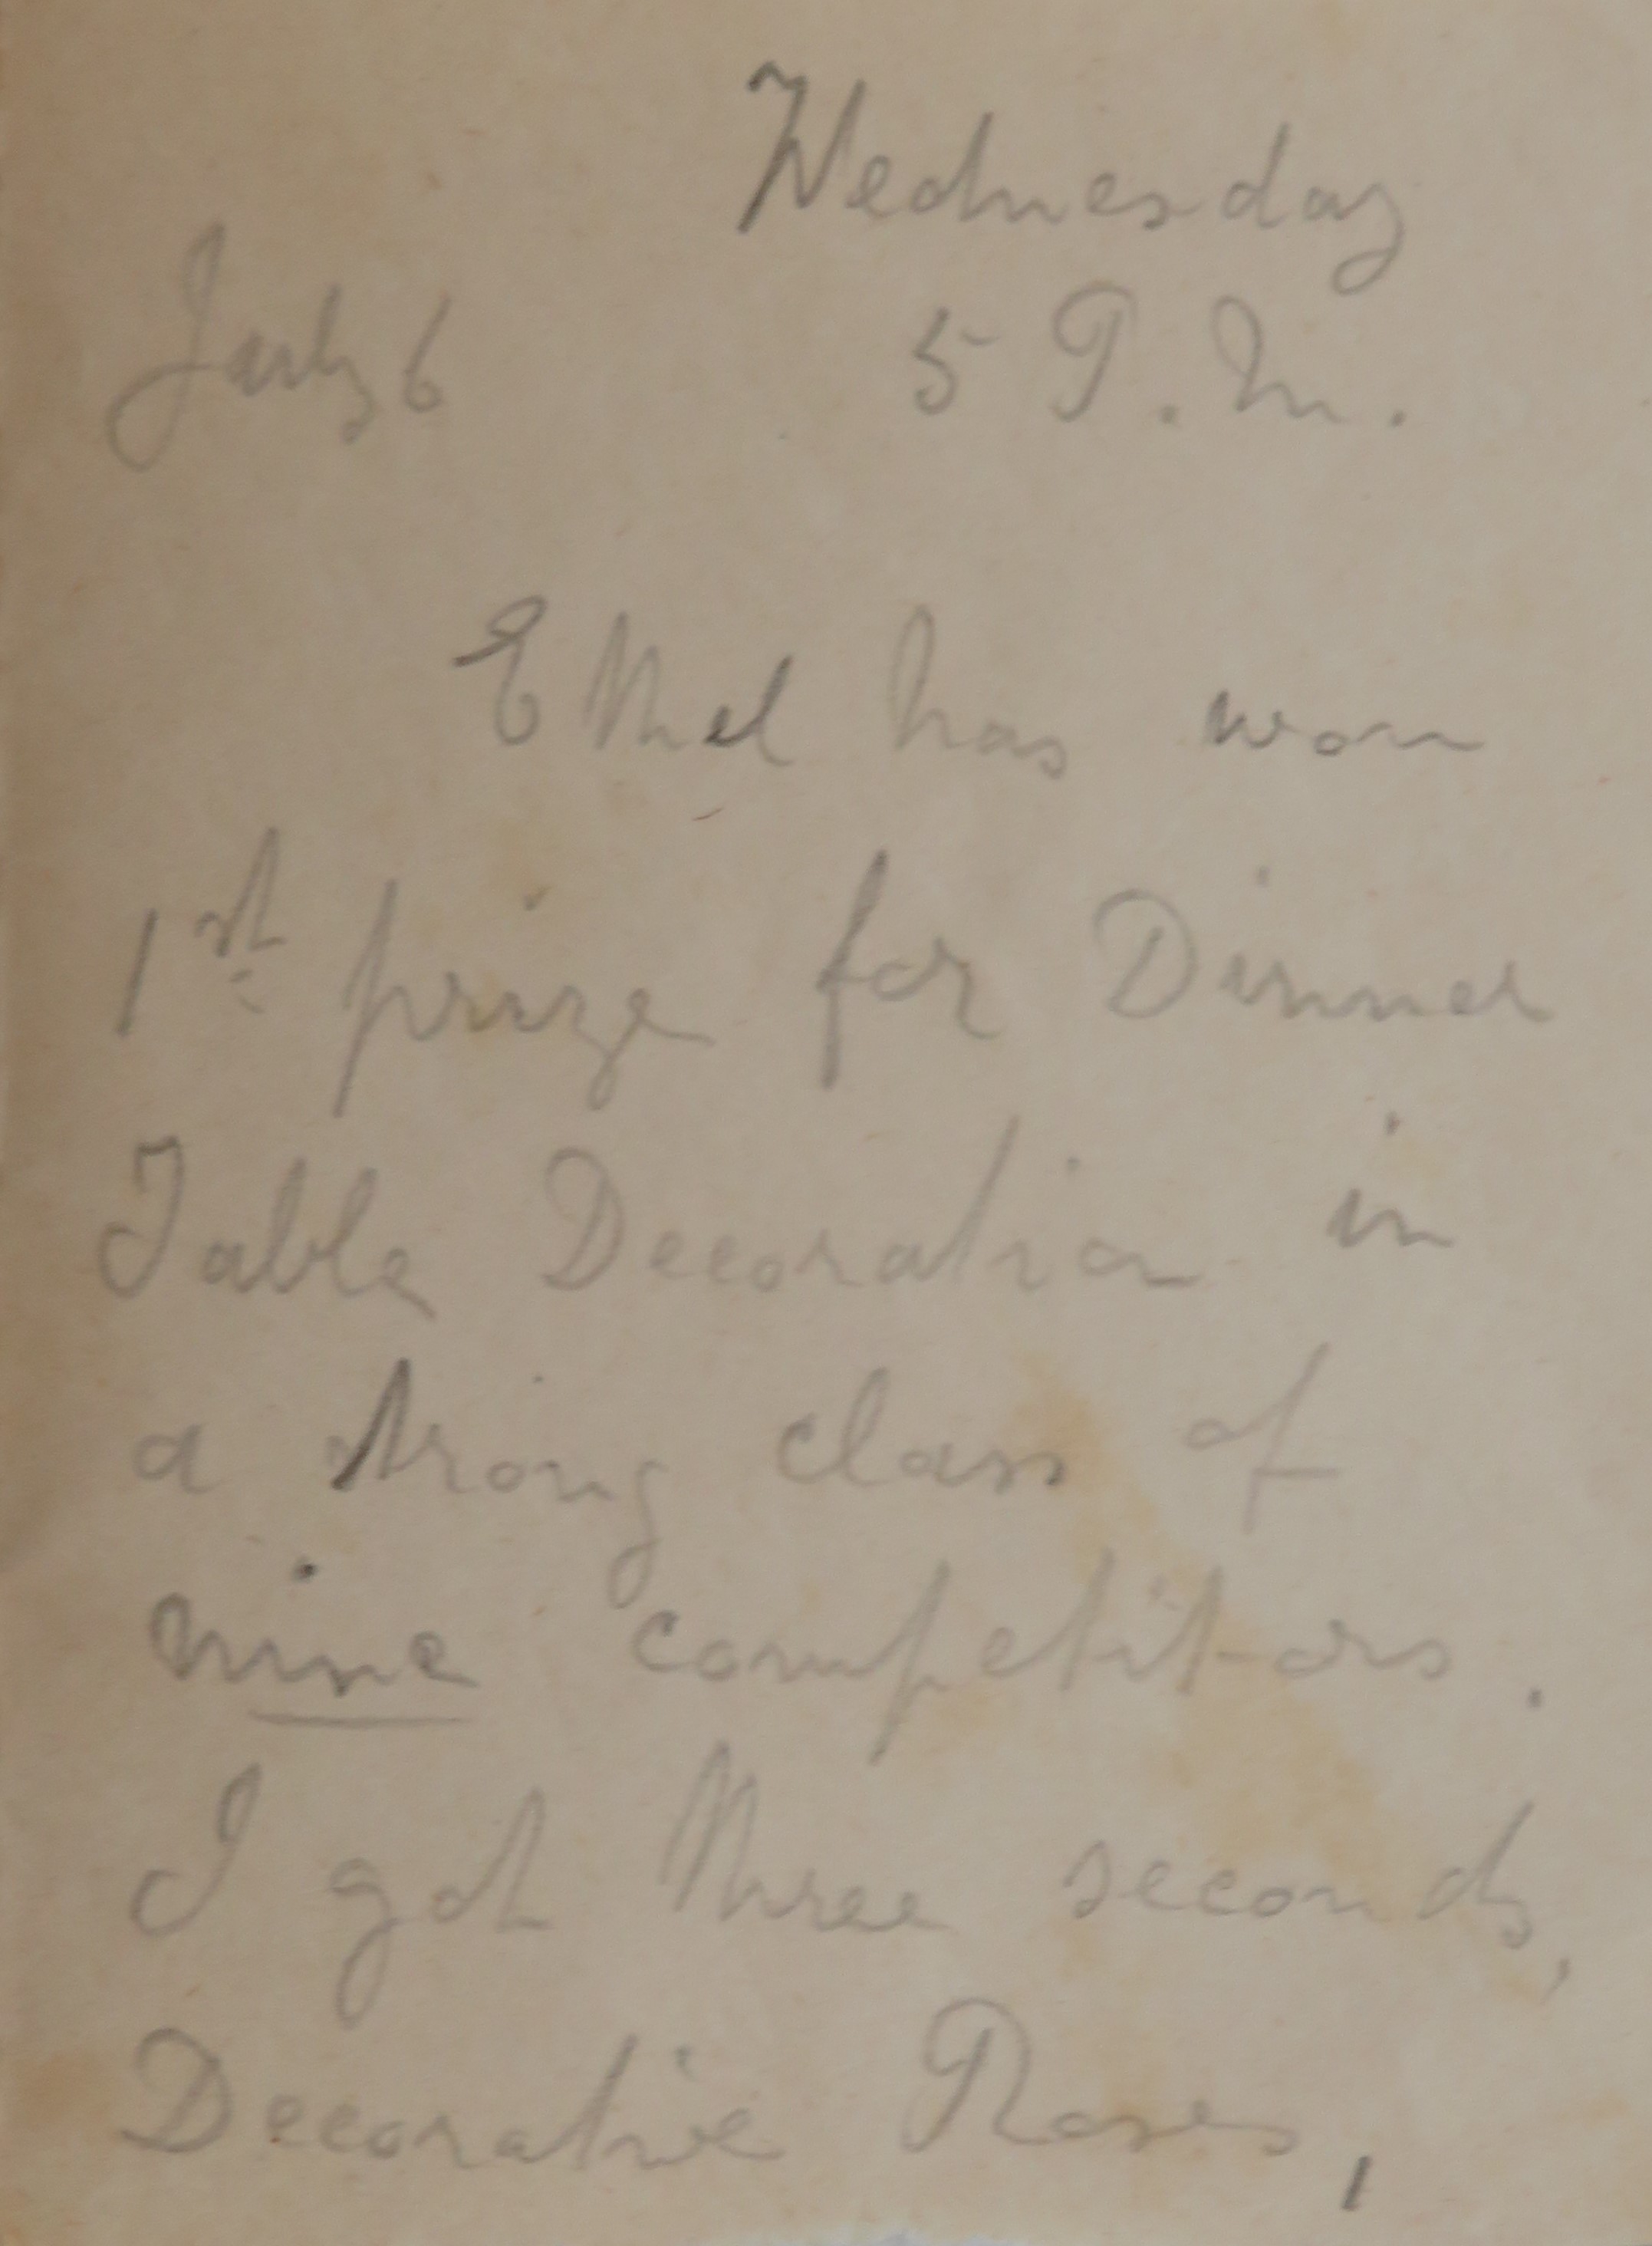 Wednesday
July 6 5 P.M.
Ethel has won
1st prize for Dinner
Table Decoration in
a strong class of
nine competitors.
I got three seconds,
Decorative Roses,